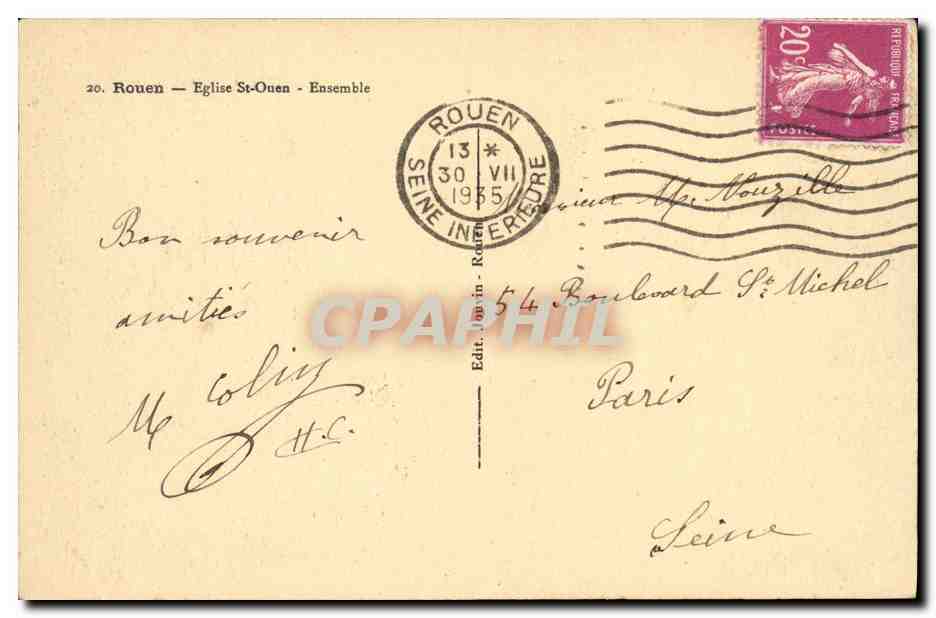 20. Rouen — Eglise St-Ouen - Ensemble
ROUEN
13 *
30 VII
1935
SEINE INFERIEURE
20c
REPUBLIQUE FRANÇAISE
POSTES
Bon souvenir
amitiés
M Colin
H.C.
Edit. Jouvin - Rouen
M. Nouzille
54 Boulevard St Michel
Paris
Seine
CPAPHIL